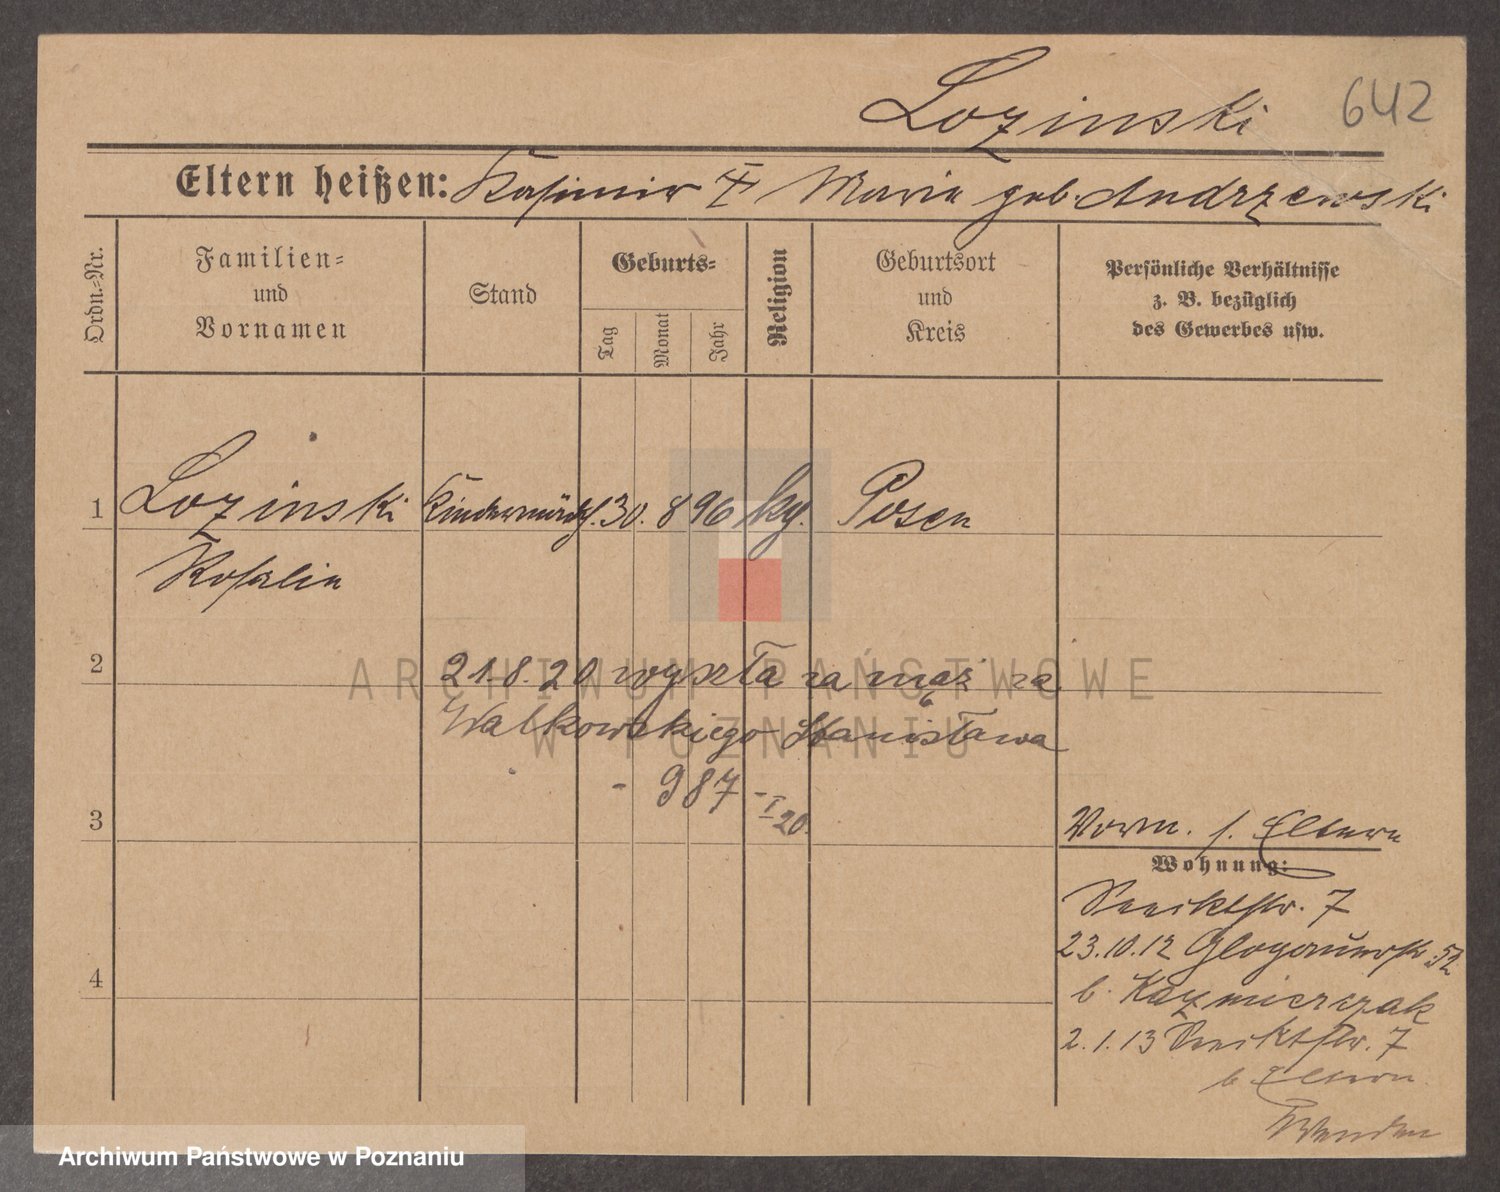 Lozinski 642
Eltern heißen: Kasimir Maria geb. Andrzewski
Ordn.-Nr.
Familien-
und
Vornamen
Stand
Geburts-
Tag
Monat
Jahr
Religion
Geburtsort
und
Kreis
Persönliche Verhältnisse
z. B. bezüglich
des Gewerbes usw.
1 Lozinski Kindermädch. 30. 8 96 kg. Posen
Rosalia
2 21.8.20 wyszła za mąż za
Walkowskiego Stanisława
- 987 - I
20.
3
Vorm. s. Eltern
Wohnung:
7
23.10.12 Glogauerstr. 52
4
b. Kazmierczak
2.1.13 7
b Eltern
Wenden
ARCHIWUM PAŃSTWOWE
W POZNANIU
Archiwum Państwowe w Poznaniu